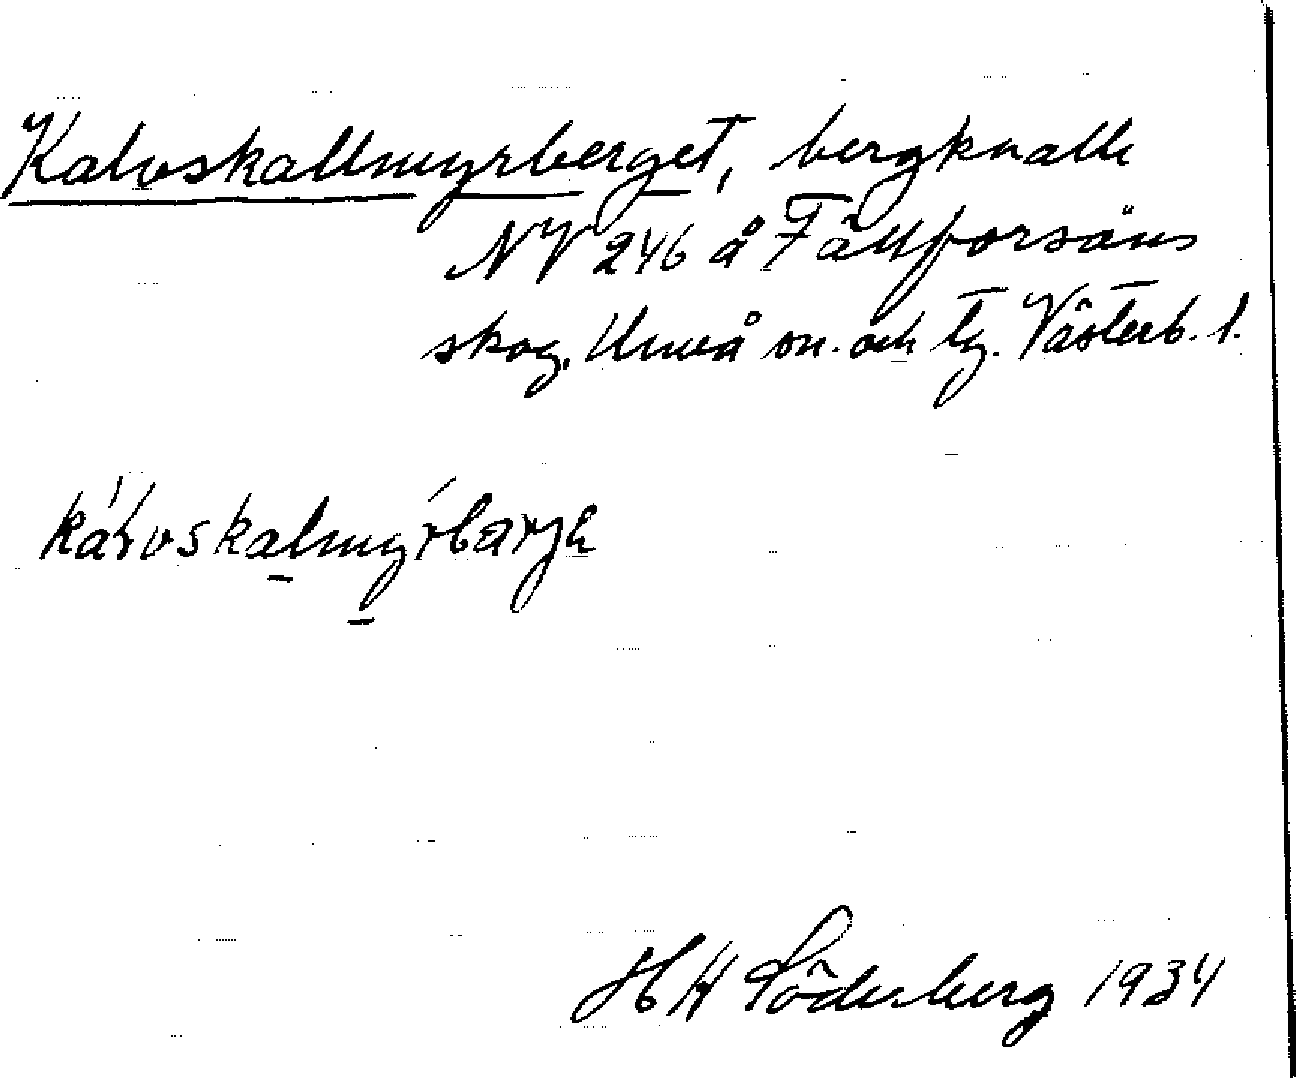 Kalvskallmyrberget, bergknalle
NV 246 å Fällforsåns
skog, Umeå sn. och tg. Västerb. l.
kálvskalmyŕbarjə
HH Söderberg 1934